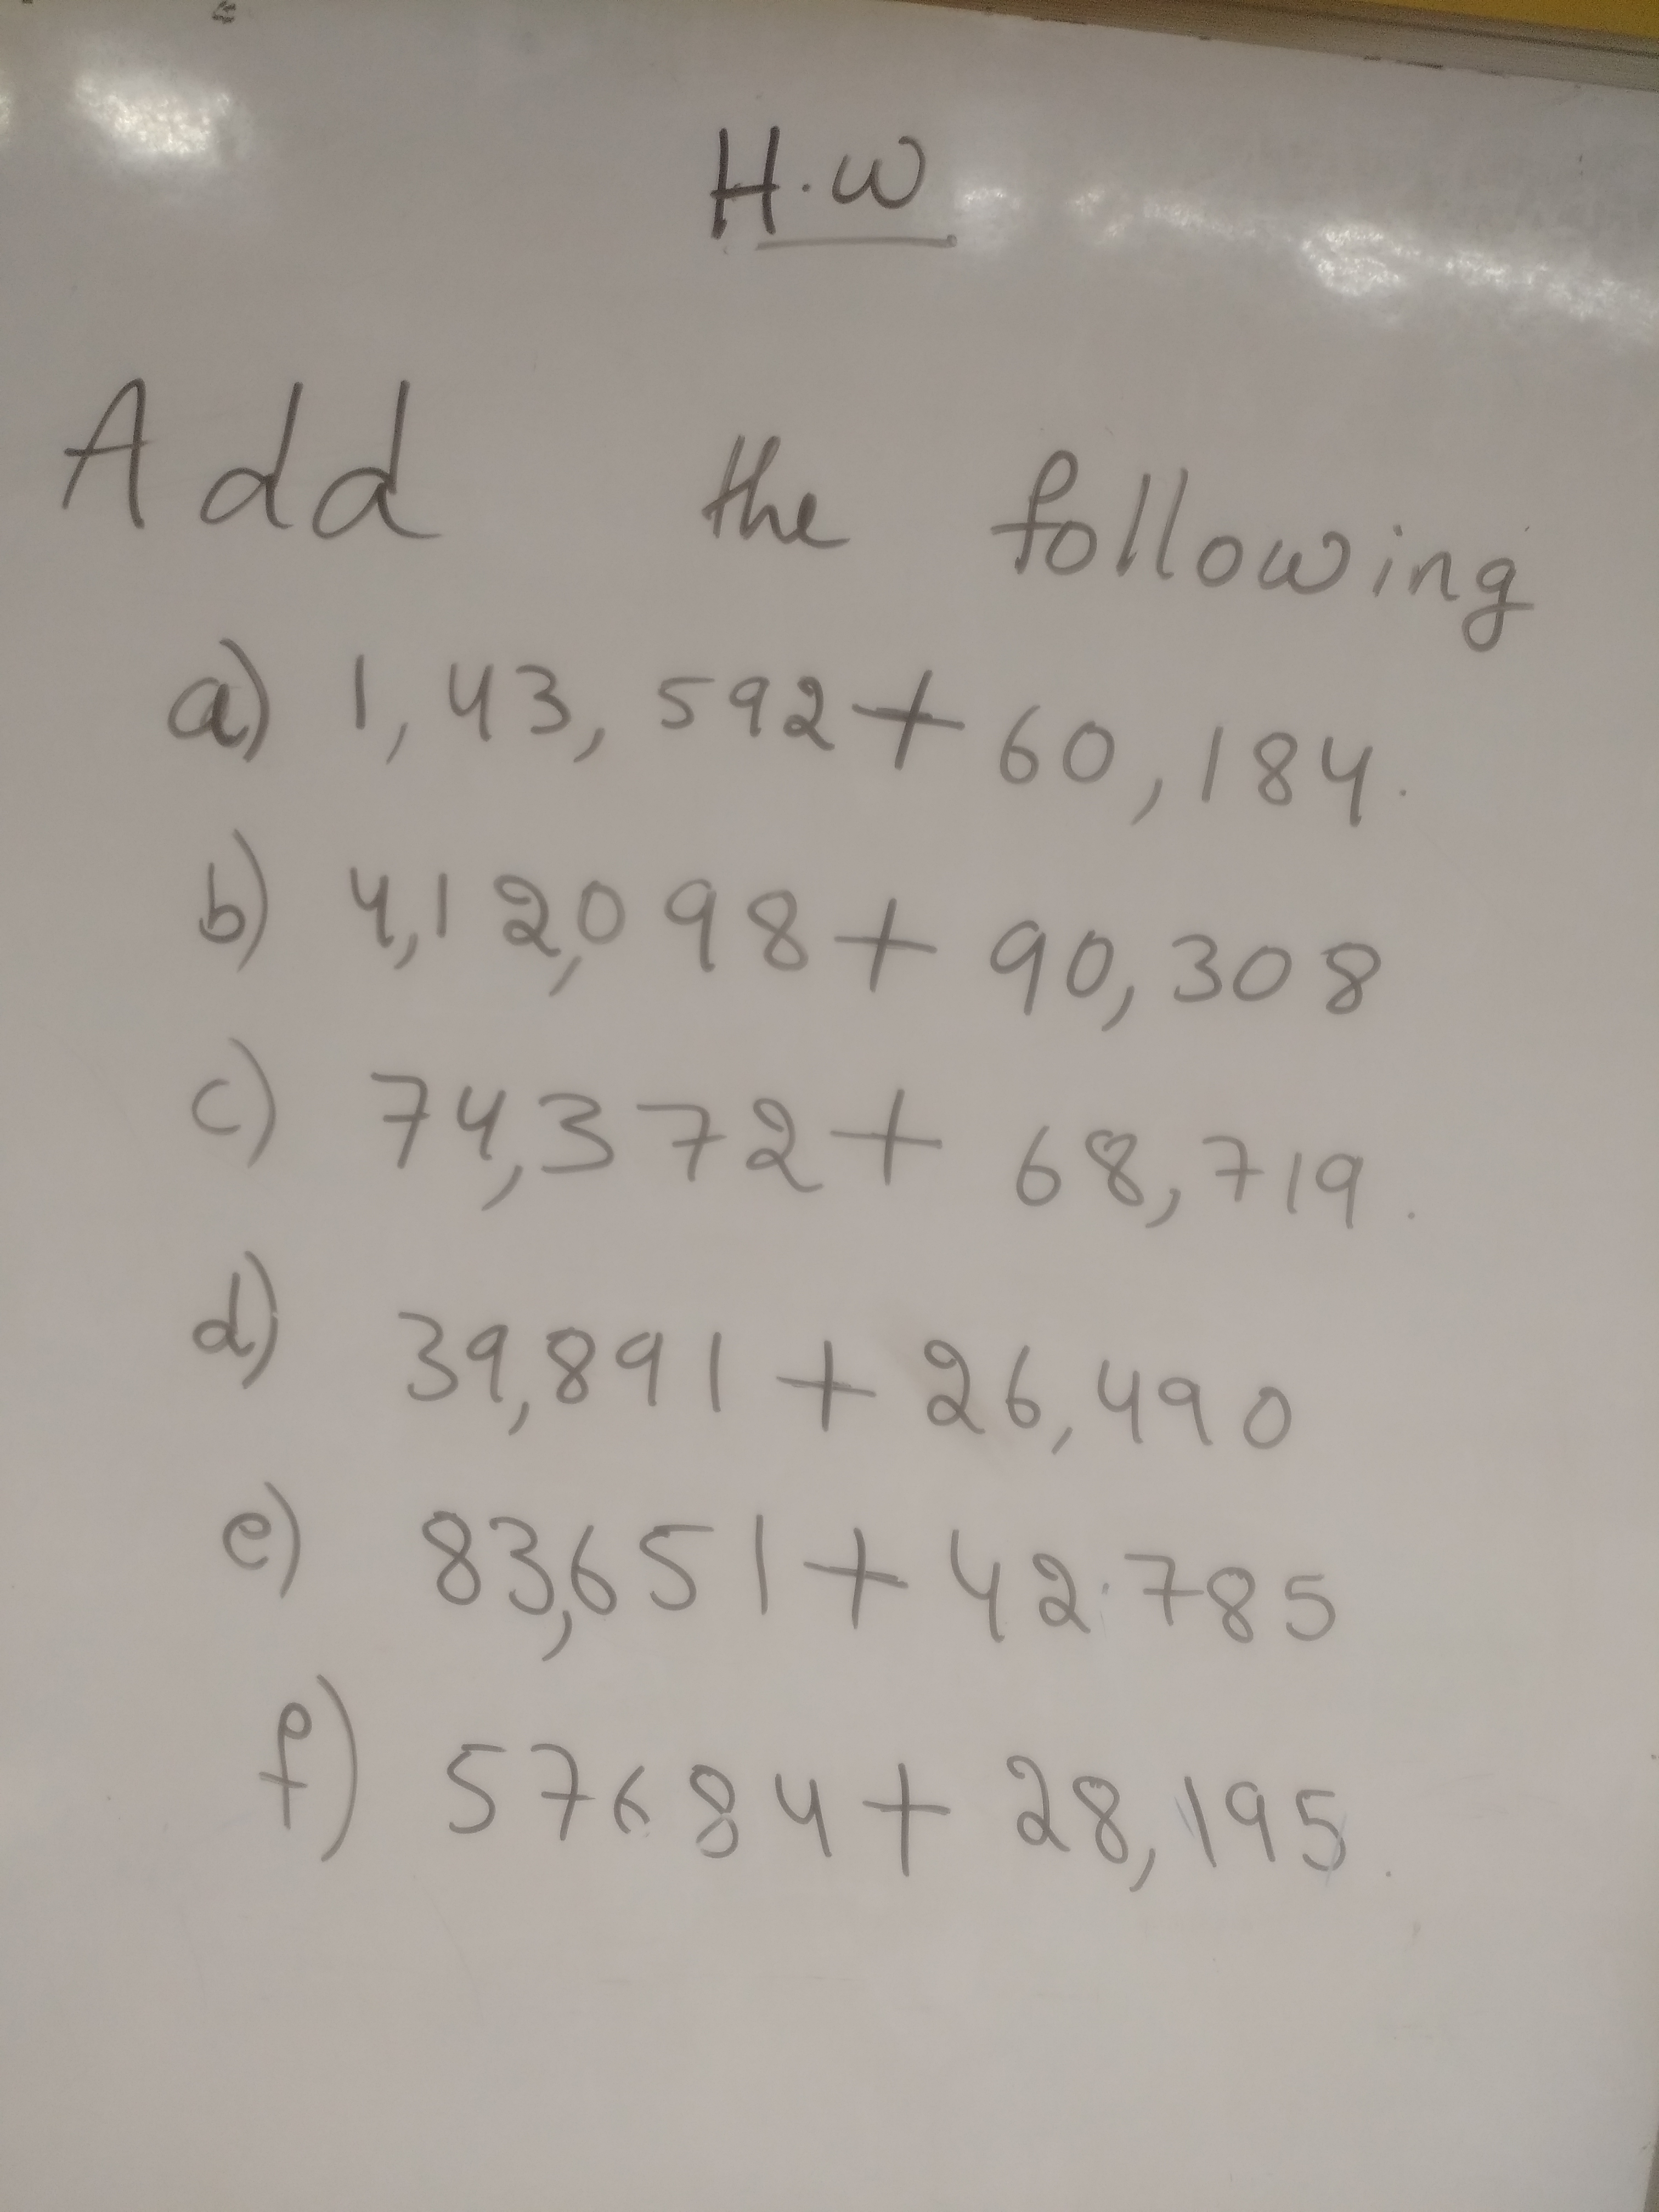 H.W
Add the following
a) 1,43,592+60,184.
b) 4,12,098+90,308
c) 74,372+68,719.
d) 39,891+26,490
e) 83,651+42.785
f) 57684+28,195.